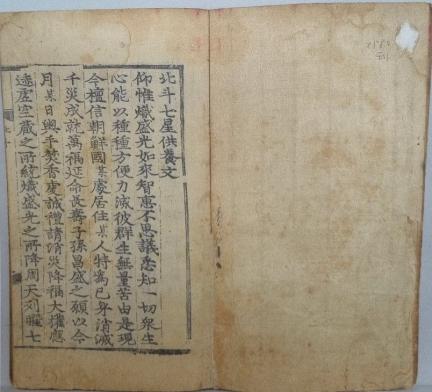 北斗七星供養文
仰惟熾盛光如來智惠不思議悉知一切衆生
心能以種種方便力滅彼群生無量苦由是現
今檀信朝鮮國某處居住某人特爲已身消滅
千災成就萬福延命長壽子孫昌盛之願以今
月某日手焚香虔誠禮請消災降福大權應
迹虛空藏之所統熾盛光之所降周天列曜七